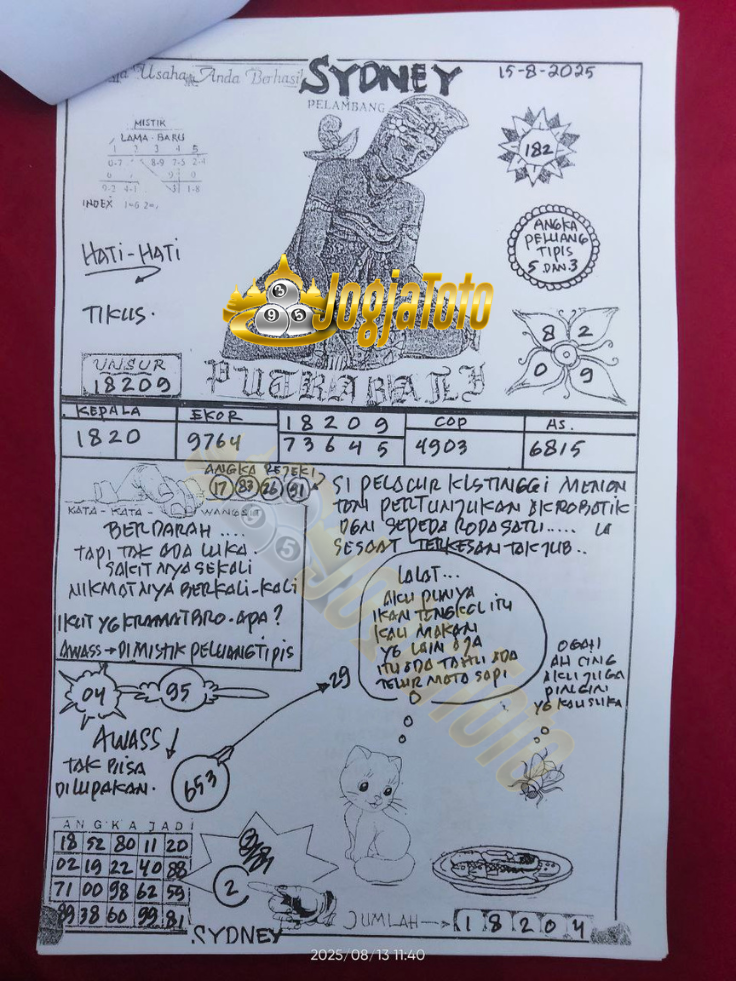 Usaha Anda Berhasil
SYDNEY
15-8-2025
PELAMBANG
MISTIK
LAMA - BARU
1 2 3 4 5
0-7 8-9 2-5 2-4
9-2 4-1 1-8
INDEX 1=6
182
ANGKA
PELUANG
TIPIS
5 DAN 3
HATI-HATI
TIKUS.
JogjaToto
9 5
8 2
0 9
UNSUR
18209
PUTRA BALI
KEPALA EKOR 18209 COP AS.
1820 9764 73645 4903 6815
ANGKA REJEKI
17 83 26 91
KATA - KATA - WANGSIT
BERDARAH ....
TAPI TAK ADA LUKA.
SAKITNYA SEKALI
NIKMATNYA BERKALI-KALI
IKUT YG KRAMAT BRO. APA?
AWASS → DI MISTIK PELUANG TIPIS
SI PELACUR KLS TINGGI MENON
TON PERTUNJUKAN AKROBATIK
DGN SEPEDA RODA SATU.....
SESAAT TERKESAN TAKJUB..
LALAT...
AKU PUNYA
IKAN TENGKEL ITU
KAU MAKAN
YG LAIN AJA
ITU ADA TAHU ADA
TELUR MATA SAPI
OGAH
AH CING
AKU JUGA
PINGIN
YG KAU SUKA
04 95
29
AWASS
TAK BISA
DILUPAKAN.
653
JogjaToto
ANGKA JADI
18 52 80 11 20
02 19 22 40 88
71 00 98 62 59
89 38 60 99 81
2
JUMLAH → 1 8 2 0 4
SYDNEY
2025/08/13 11:40